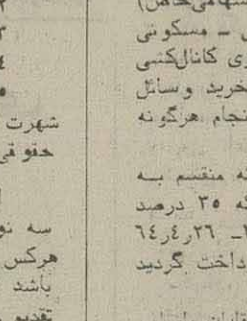 سهامی خاص)
ـ مسکونی
ی کانال‌کشی
خرید و سائل
نجام هرگونه
ه منقسم به
که ۳۵ درصد
ـ ۲۶ر۴ر۶۴
داخت گردید
۳
۴
۵
شهرت
حقوقی
سه نو
هرکس
باشد
تقدیم